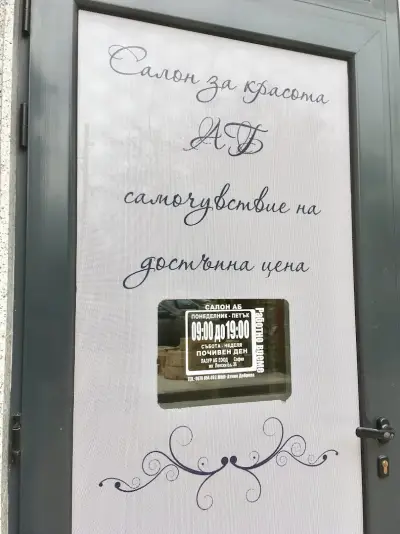 Салон за красота
АБ
самочувствие на
достъпна цена
САЛОН АБ
ПОНЕДЕЛНИК - ПЕТЪК
09:00 до 19:00
СЪБОТА - НЕДЕЛЯ
ПОЧИВЕН ДЕН
ЕООД София
Работно време